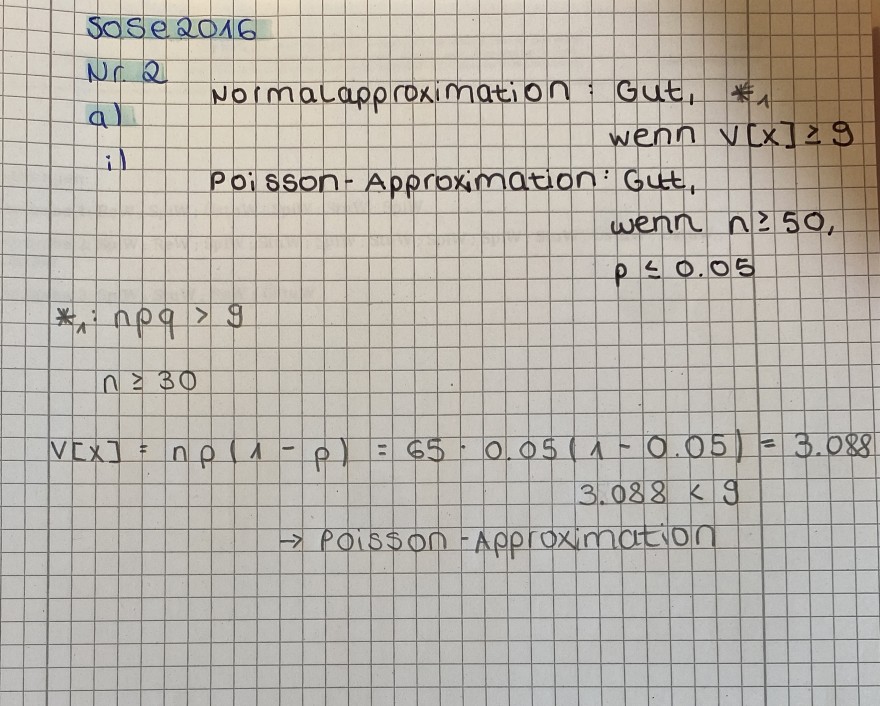 SoSe 2016
Nr. 2
a)
i)
Normalapproximation : Gut, *₁
wenn V[X] ≥ 9
Poisson-Approximation : Gut,
wenn n ≥ 50,
p ≤ 0.05
*₁ : npq > 9
n ≥ 30
V[X] = np(1 - p) = 65 · 0.05(1 - 0.05) = 3.088
3.088 < 9
→ Poisson-Approximation